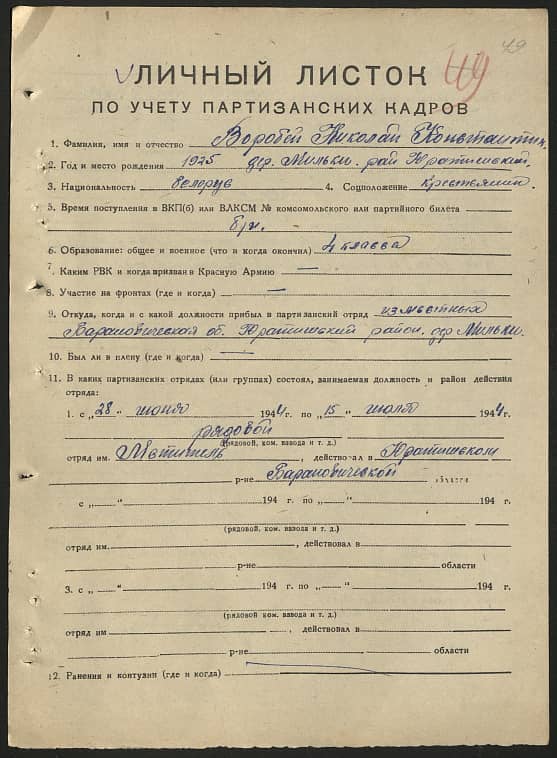 49
49
ЛИЧНЫЙ ЛИСТОК
ПО УЧЕТУ ПАРТИЗАНСКИХ КАДРОВ
1. Фамилия, имя и отчество Воробей Николай Константин.
2. Год и место рождения 1925 дер. Мильки. рай Юратишский.
3. Национальность белорус 4. Соцположение крестьянин
5. Время поступления в ВКП(б) или ВЛКСМ № комсомольского или партийного билета
б/п.
6. Образование: общее и военное (что и когда окончил) 4 класса
7. Каким РВК и когда призван в Красную Армию —
8. Участие на фронтах (где и когда) —
9. Откуда, когда и с какой должности прибыл в партизанский отряд из местных
Барановическая об. Юратишский район. дер Мильки.
10. Был ли в плену (где и когда) —
11. В каких партизанских отрядах (или группах) состоял, занимаемая должность и район действия
отряда:
1. с „28“ июня 1944 г. по „15“ июля 1944 г.
рядовой
(рядовой, ком. взвода и т. д.)
отряд им. Мститель, действовал в Юратишском
р-не Барановической области
с „—“ 194 г. по „—“ 194 г.
(рядовой, ком. взвода и т. д.)
отряд им. , действовал в
р-не области
3. с „—“ 194 г. по „—“ 194 г.
(рядовой, ком. взвода и т. д.)
отряд им , действовал в
р-не области
12. Ранения и контузии (где и когда)